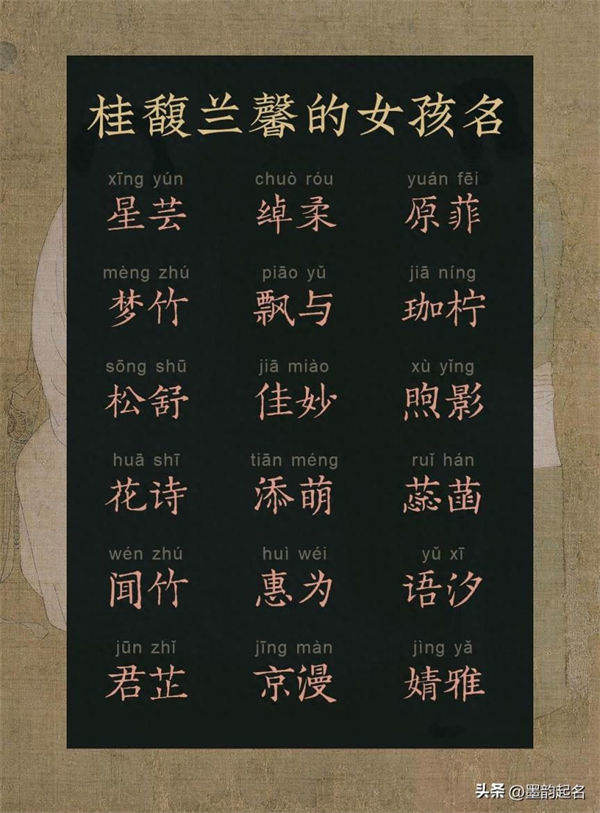 桂馥兰馨的女孩名
xīng yún chuò róu yuán fēi
星芸 绰柔 原菲
mèng zhú piāo yǔ jiā níng
梦竹 飘与 珈柠
sōng shū jiā miào xù yǐng
松舒 佳妙 煦影
huā shī tiān méng ruǐ hán
花诗 添萌 蕊菡
wén zhú huì wéi yǔ xī
闻竹 惠为 语汐
jūn zhǐ jīng màn jìng yǎ
君芷 京漫 婧雅
头条 @墨韵起名